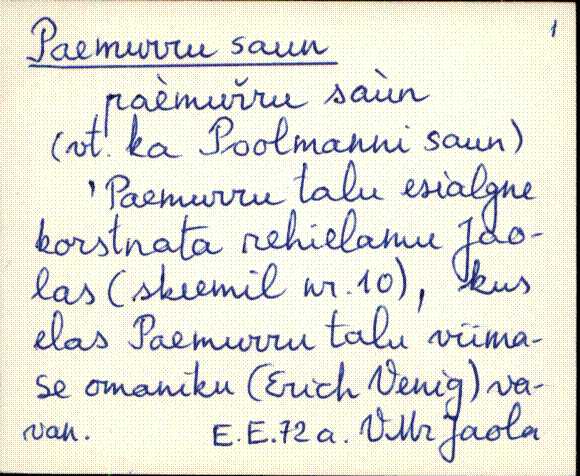 1
Paemurru saun
paèmuřru saùn
(vt. ka Poolmanni saun)
'Paemurru talu esialgne
korstnata rehielamu Jao-
las (skeemil nr. 10), kus
elas Paemurru talu viima-
se omaniku (Erich Venig) va-
van. E.E.72 a. VMr Jaola